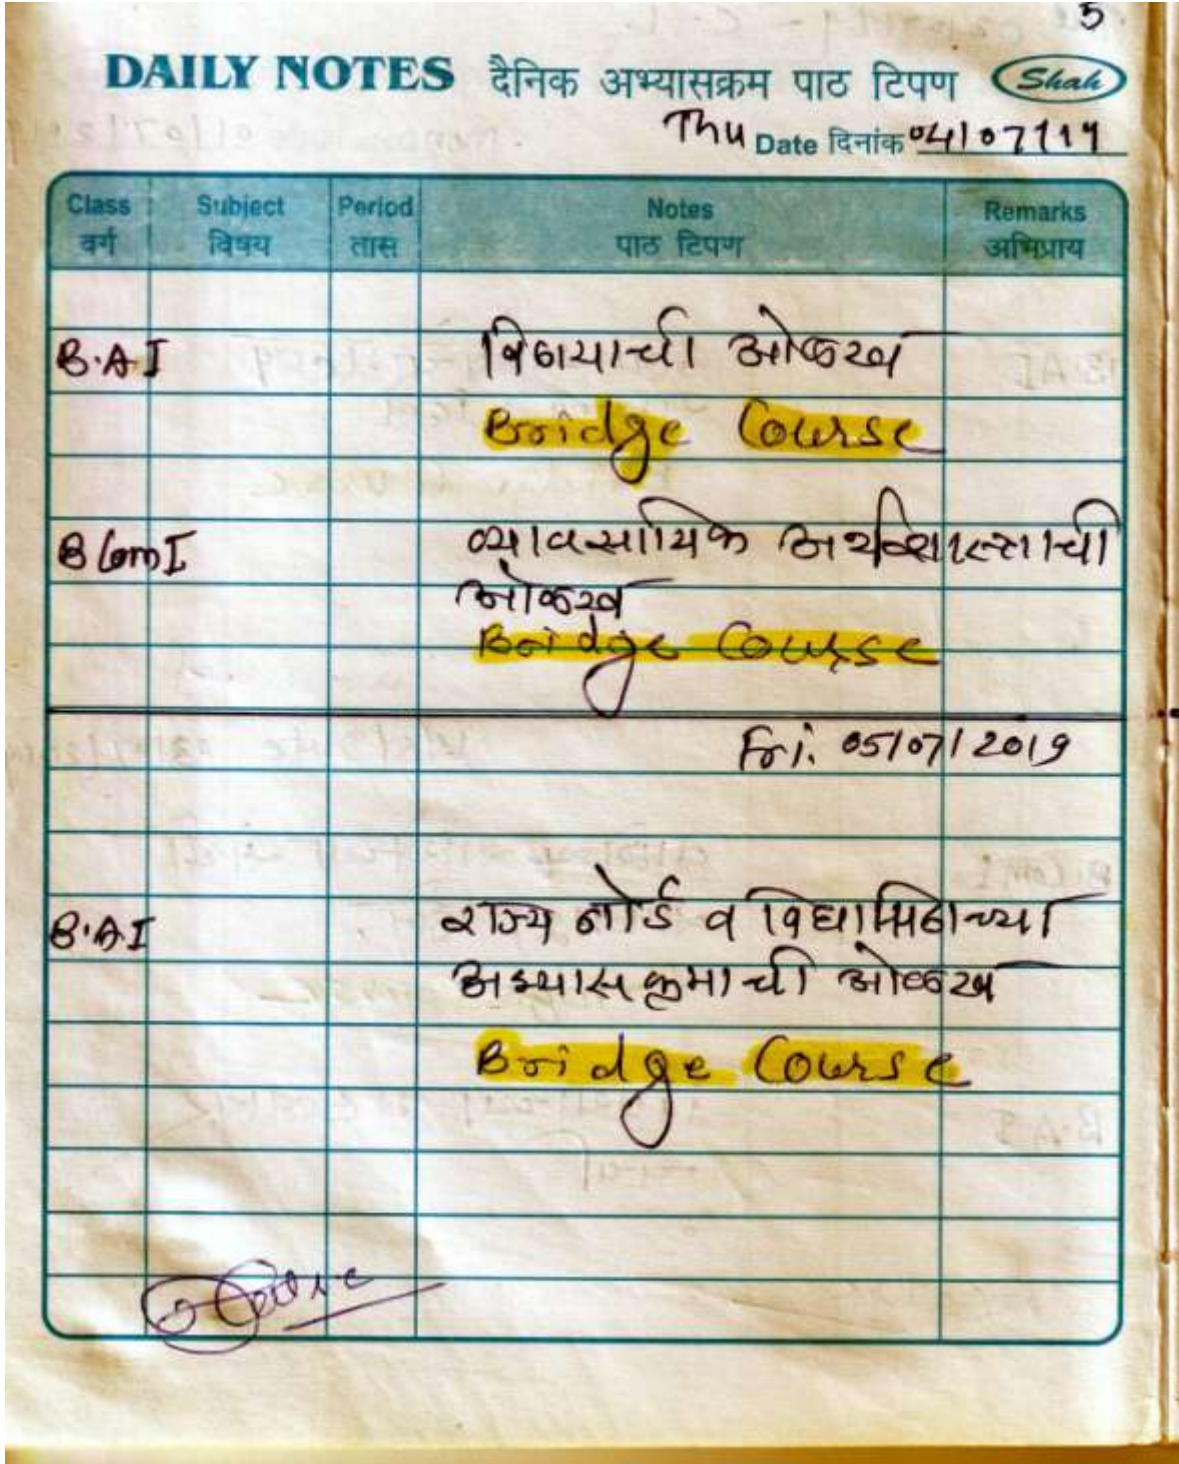 5
DAILY NOTES दैनिक अभ्यासक्रम पाठ टिपण Shah
Thu Date दिनांक 04/07/19
Class Subject Period Notes Remarks
वर्ग विषय तास पाठ टिपण अभिप्राय
B.A I विषयाची ओळख
Bridge Course
B Com I व्यावसायिक अर्थशास्त्राची
ओळख
Bridge Course
Fri. 05/07/2019
B.A I राज्य बोर्ड व विद्यापिठाच्या
अभ्यासक्रमाची ओळख
Bridge Course